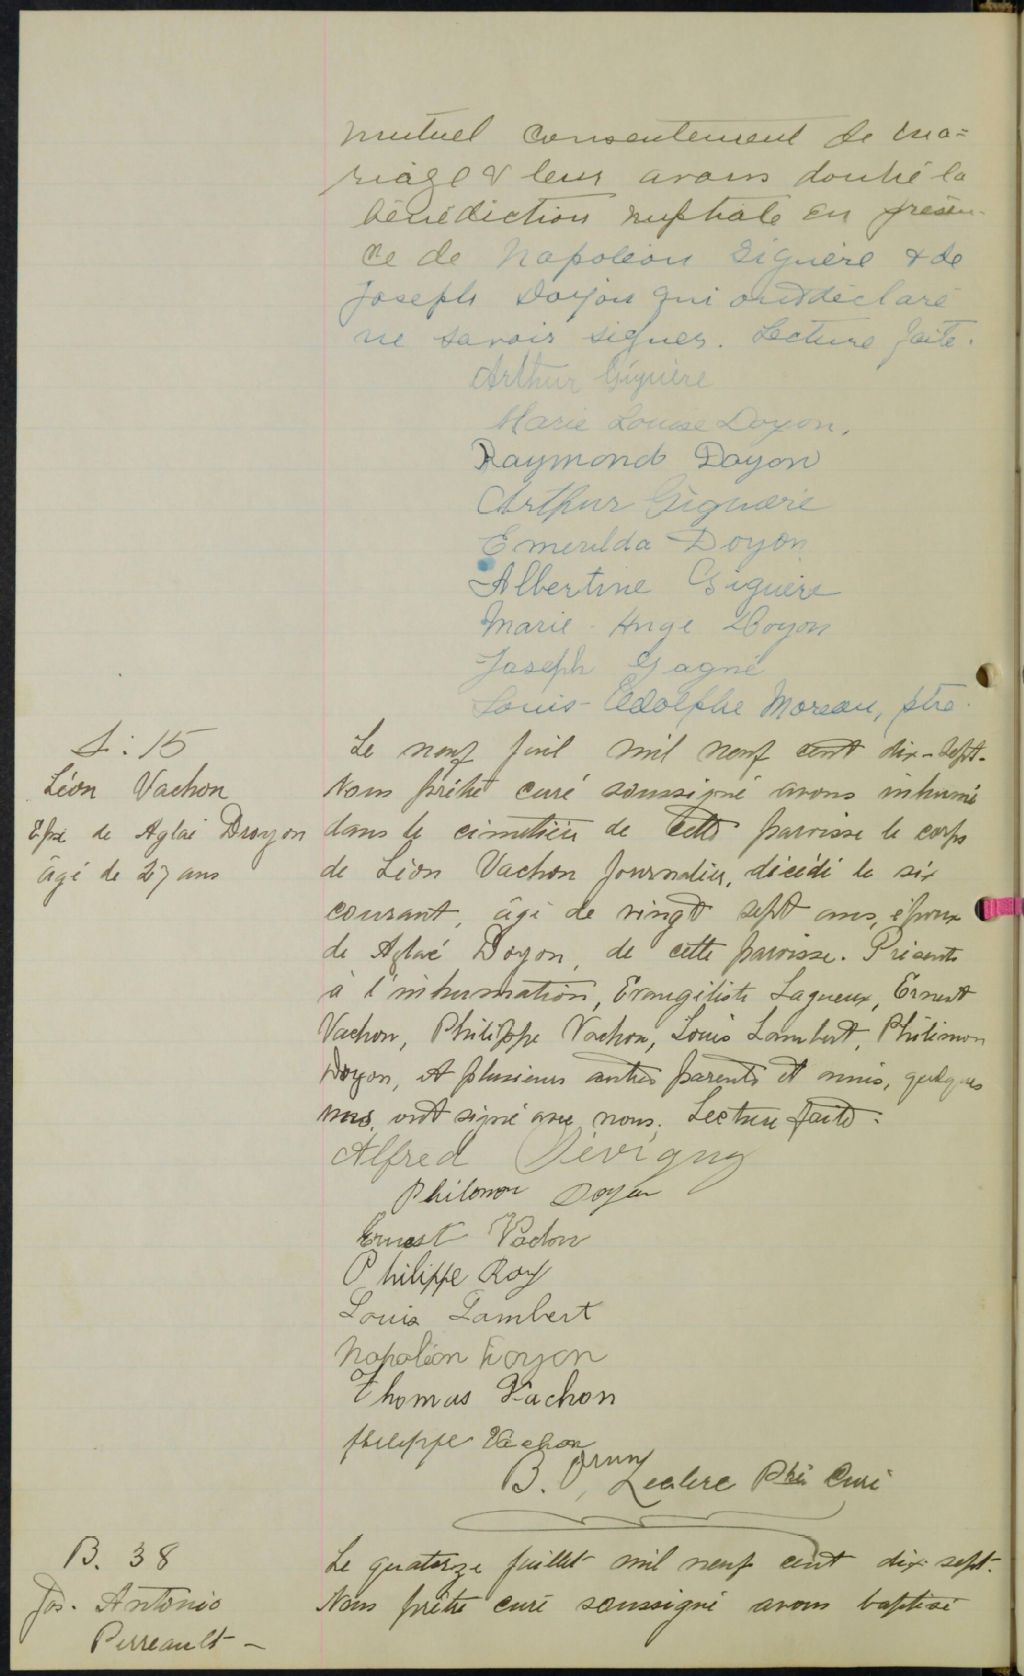 mutuel consentement de ma=
riage & leur avons donné la
bénédiction nuptiale en présen-
ce de Napoléon Giguère & de
Joseph Doyon qui ont déclaré
ne savoir signer. Lecture faite.
Arthur Giguère
Marie Louise Doyon.
Raymond Doyon
Arthur Giguère
Emerilda Doyon
Albertine Giguère
Marie-Ange Doyon
Joseph Gagné
Louis-Adolphe Moreau, ptre.
S: 15
Léon Vachon
Epx de Aglaé Droyon
âgé de 27 ans
Le neuf juil mil neuf cent dix-sept.
Nous prêtre curé soussigné avons inhumé
dans le cimetière de cette paroisse le corps
de Léon Vachon journalier, décédé le six
courant, âgé de vingt sept ans, époux
de Aglaé Doyon, de cette paroisse. Présents
à l'inhumation, Evangéliste Lagueux, Ernest
Vachon, Philippe Vachon, Louis Lambert, Philémon
Doyon, et plusieurs autres parents et amis, quelques
uns ont signé avec nous. Lecture faite.
Alfred Sévigny
Philémon Doyon
Ernest Vachon
Philippe Roy
Louis Lambert
Napoléon Doyon
Thomas Vachon
Philippe Vachon
B. Leclerc Ptre Curé
B. 38
Jos. Antonio
Perreault -
Le quatorze juillet mil neuf cent dix-sept.
Nous prêtre curé soussigné avons baptisé